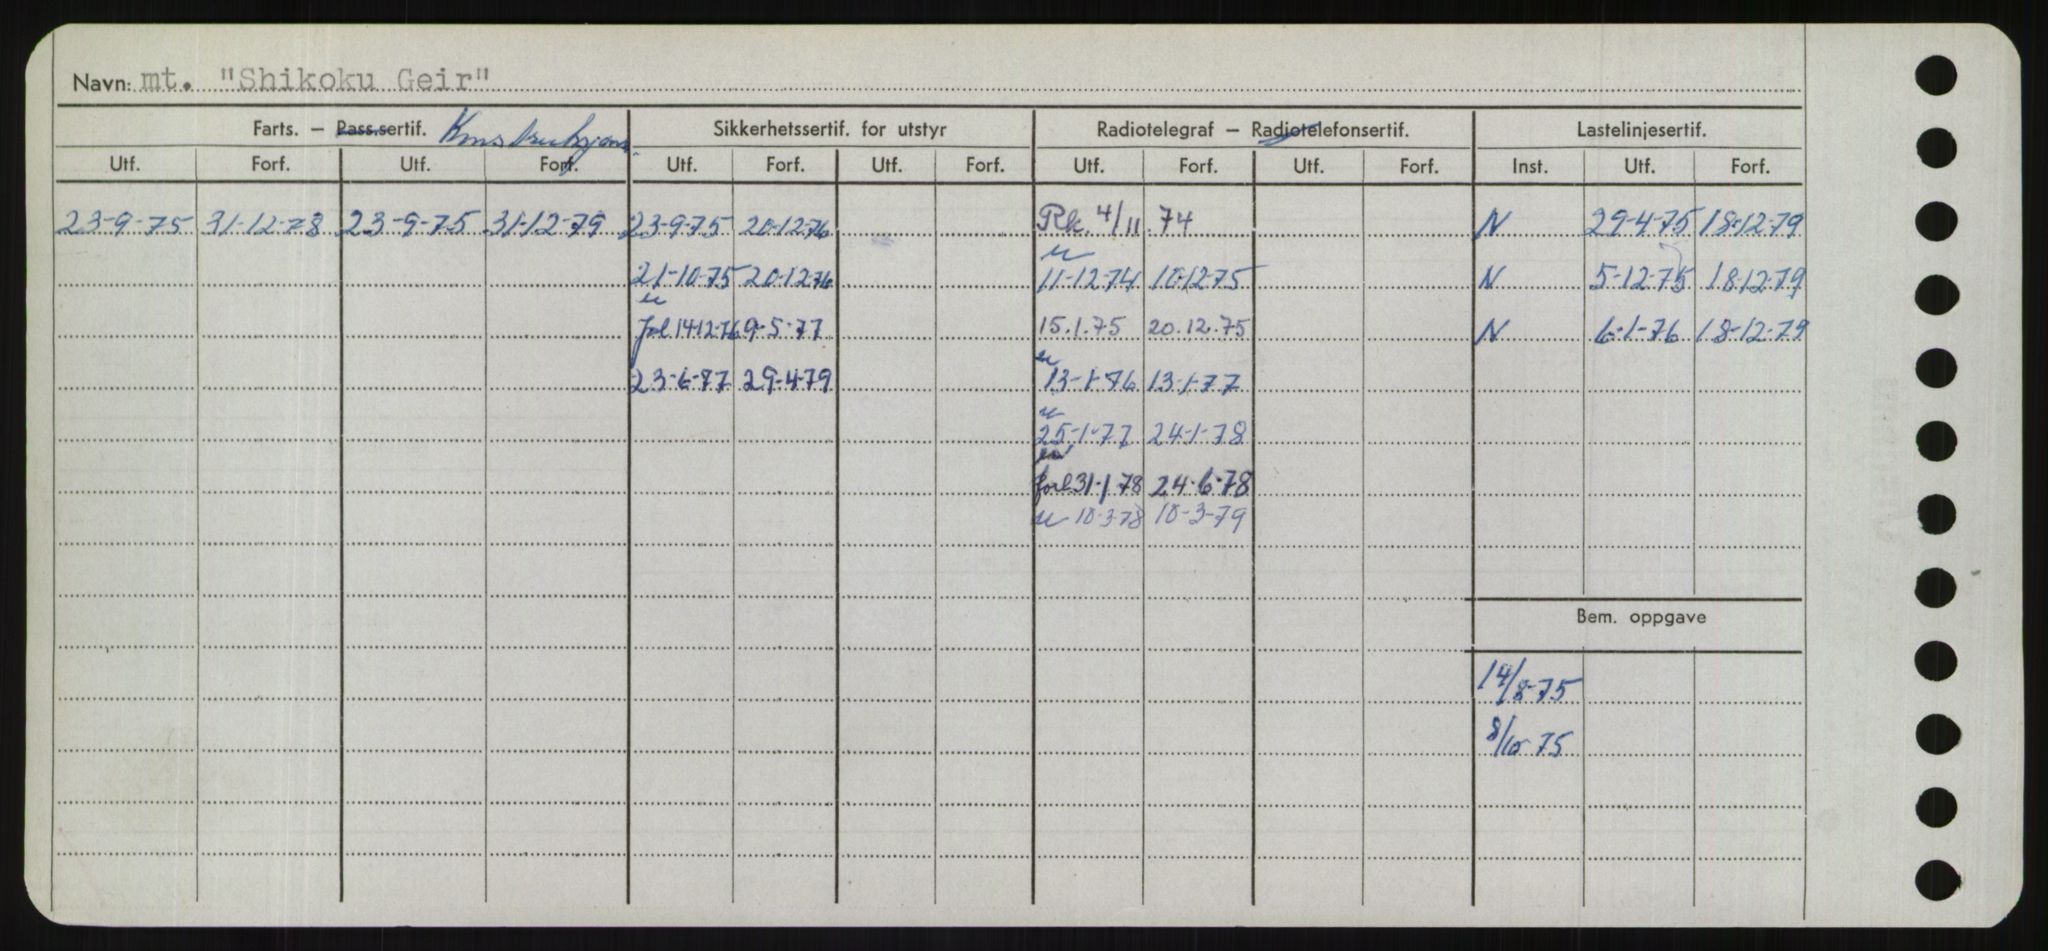 Navn: mt. "Shikoku Geir"
Farts. – Pass.sertif. Konstruksjons. Sikkerhetssertif. for utstyr Radiotelegraf – Radiotelefonsertif. Lastelinjesertif.
Utf. Forf. Utf. Forf. Utf. Forf. Utf. Forf. Utf. Forf. Utf. Forf. Inst. Utf. Forf.
23-9-75 31-12-78 23-9-75 31-12-79 23-9-75 20-12-76 Rk. 4/11 .74 N 29-4-75 18-12-79
21-10-75 20-12-76 11-12-74 10-12-75 N 5-12-75 18-12-79
14-12-76 9-5-77 15.1.75 20.12.75 N 6-1-76 18-12-79
23-6-77 29-4-79 13-1-76 13-1-77
25-1-77 24-1-78
forl 31-1-78 24-6-78
10-3-78 10-3-79
Bem. oppgave
14/8-75
8/10-75